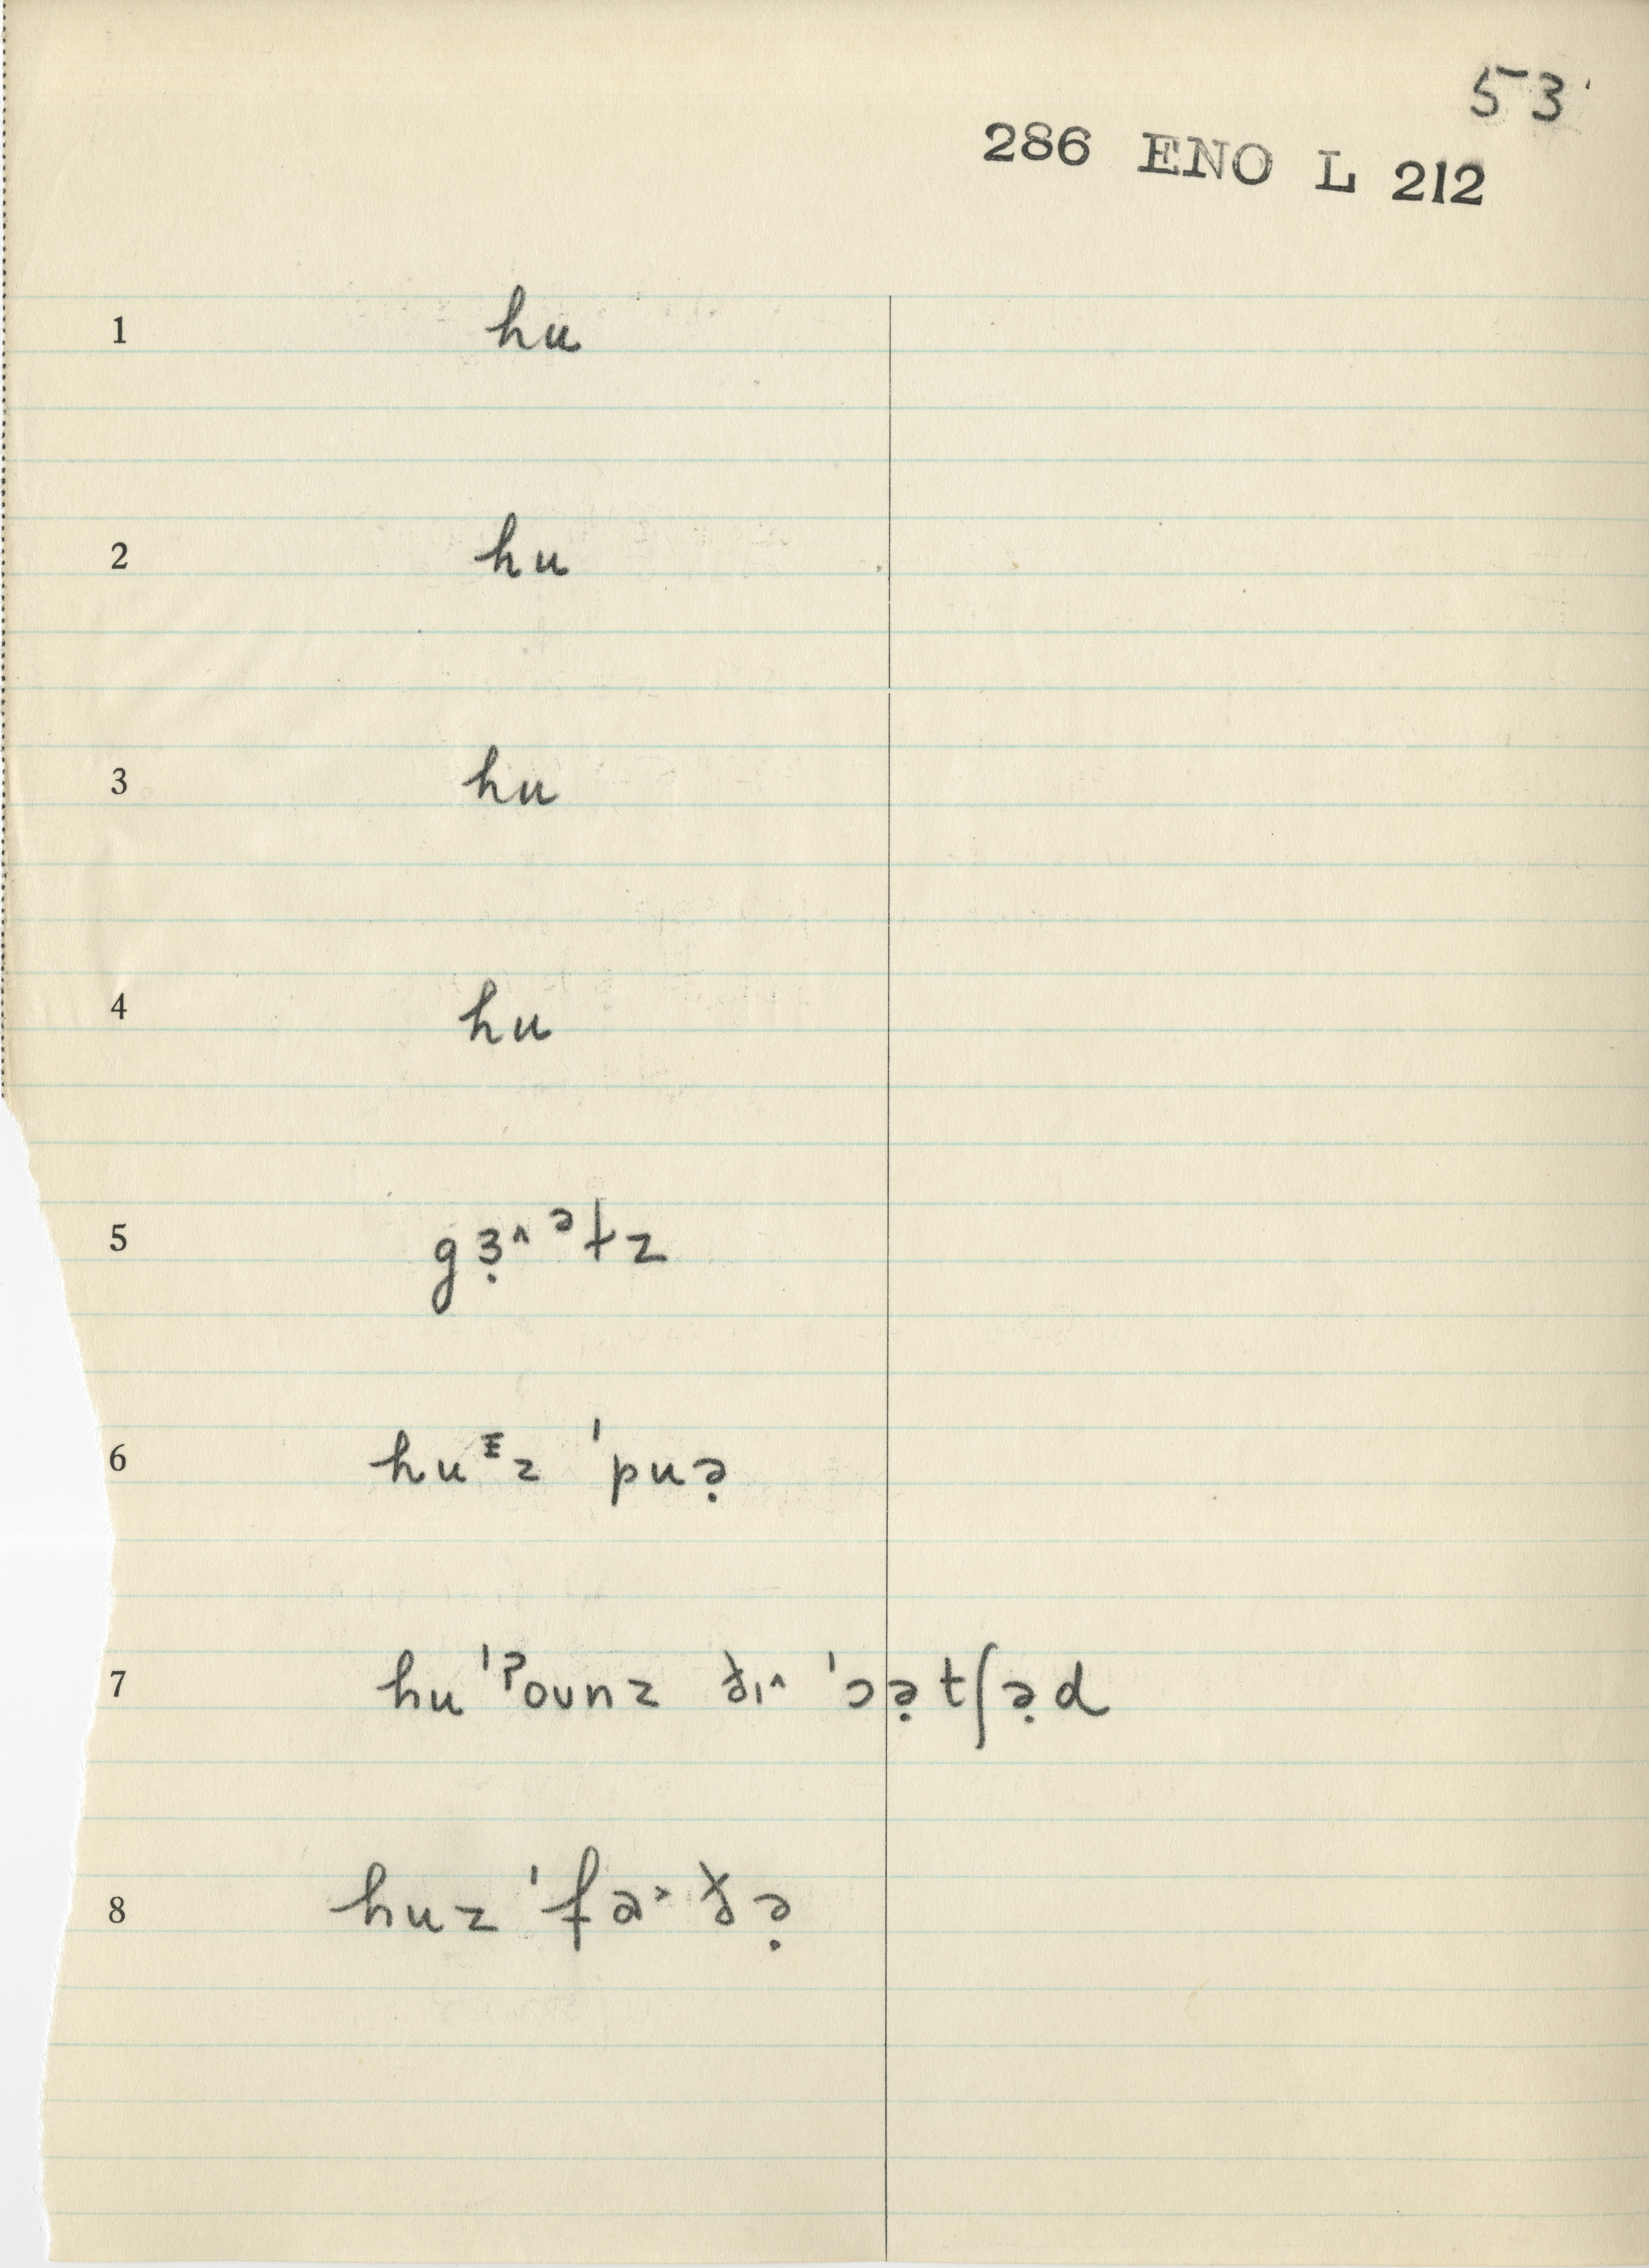 53
286 ENO L 212
1 hu
2 hu
3 hu
4 hu
5 gɜ̣˄ᵊɫz
6 huᶤz ˈpuə̣
7 hu ˈʔoʊnz ðɪ˄ ˈɔə̣tʃə̣d
8 huz ˈfɑ˃ðə̣